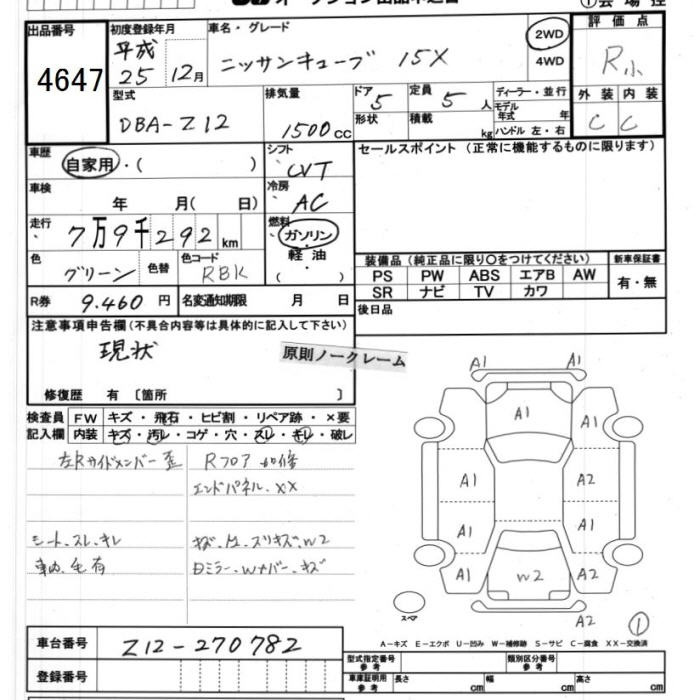 出品番号
4647
初度登録年月
平成
25 12月
車名・グレード
ニッサンキューブ 15X
2WD
4WD
評価点
R小
外装 内装
C C
型式
DBA-Z12
排気量
1500cc
ドア 5
定員 5人
形状
積載 kg
ディーラー・並行
モデル
年式 年
ハンドル 左・右
車歴
自家用・( )
シフト
CVT
セールスポイント(正常に機能するものに限ります)
車検
年 月( 日)
冷房
AC
走行
7万9千292km
燃料
ガソリン
軽油
( )
色
グリーン
色替
色コード
RBK
装備品(純正品に限り○をつけてください)
新車保証書
PS PW ABS エアB AW
有・無
SR ナビ TV カワ
R券 9.460円
名変通知期限 月 日
後日品
注意事項申告欄(不具合内容等は具体的に記入して下さい)
現状
原則ノークレーム
修復歴 有〔箇所 〕
検査員 FW キズ・飛石・ヒビ割・リペア跡・×要
記入欄 内装 キズ・汚レ・コゲ・穴・スレ・キレ・破レ
左Rサイドメンバー歪
Rフロア
エンドパネル.XX
シート.スレ.キレ
キズ.
スリキズ.W2
車内.毛有
A1 A1
A1
A1 A2
A1 A1
A1 W2 A2
A2
スペア
1
A-キズ E-エクボ U-凹み W-補修跡 S-サビ C-腐食 XX-交換済
車台番号 Z12-270782
登録番号
型式指定番号
参考
類別区分番号
参考
車庫証明用
参考
長さ cm 幅 cm 高さ cm